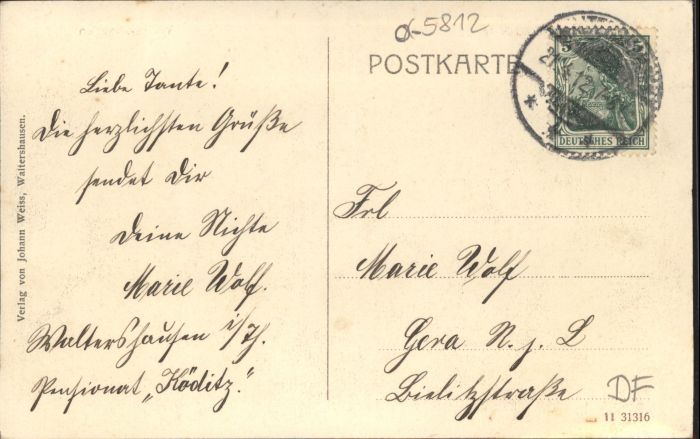 α-5812
POSTKARTE
DEUTSCHES REICH
Liebe Tante!
Die herzlichsten Grüße
sendet Dir
Deine Nichte
Marie Wolf.
Waltershausen i/Th.
Pensionat „Köditz."
Verlag von Johann Weiss, Waltershausen.
Frl
Marie Wolf
Gera R. j. L
Bielitzstraße
DF
11 31316